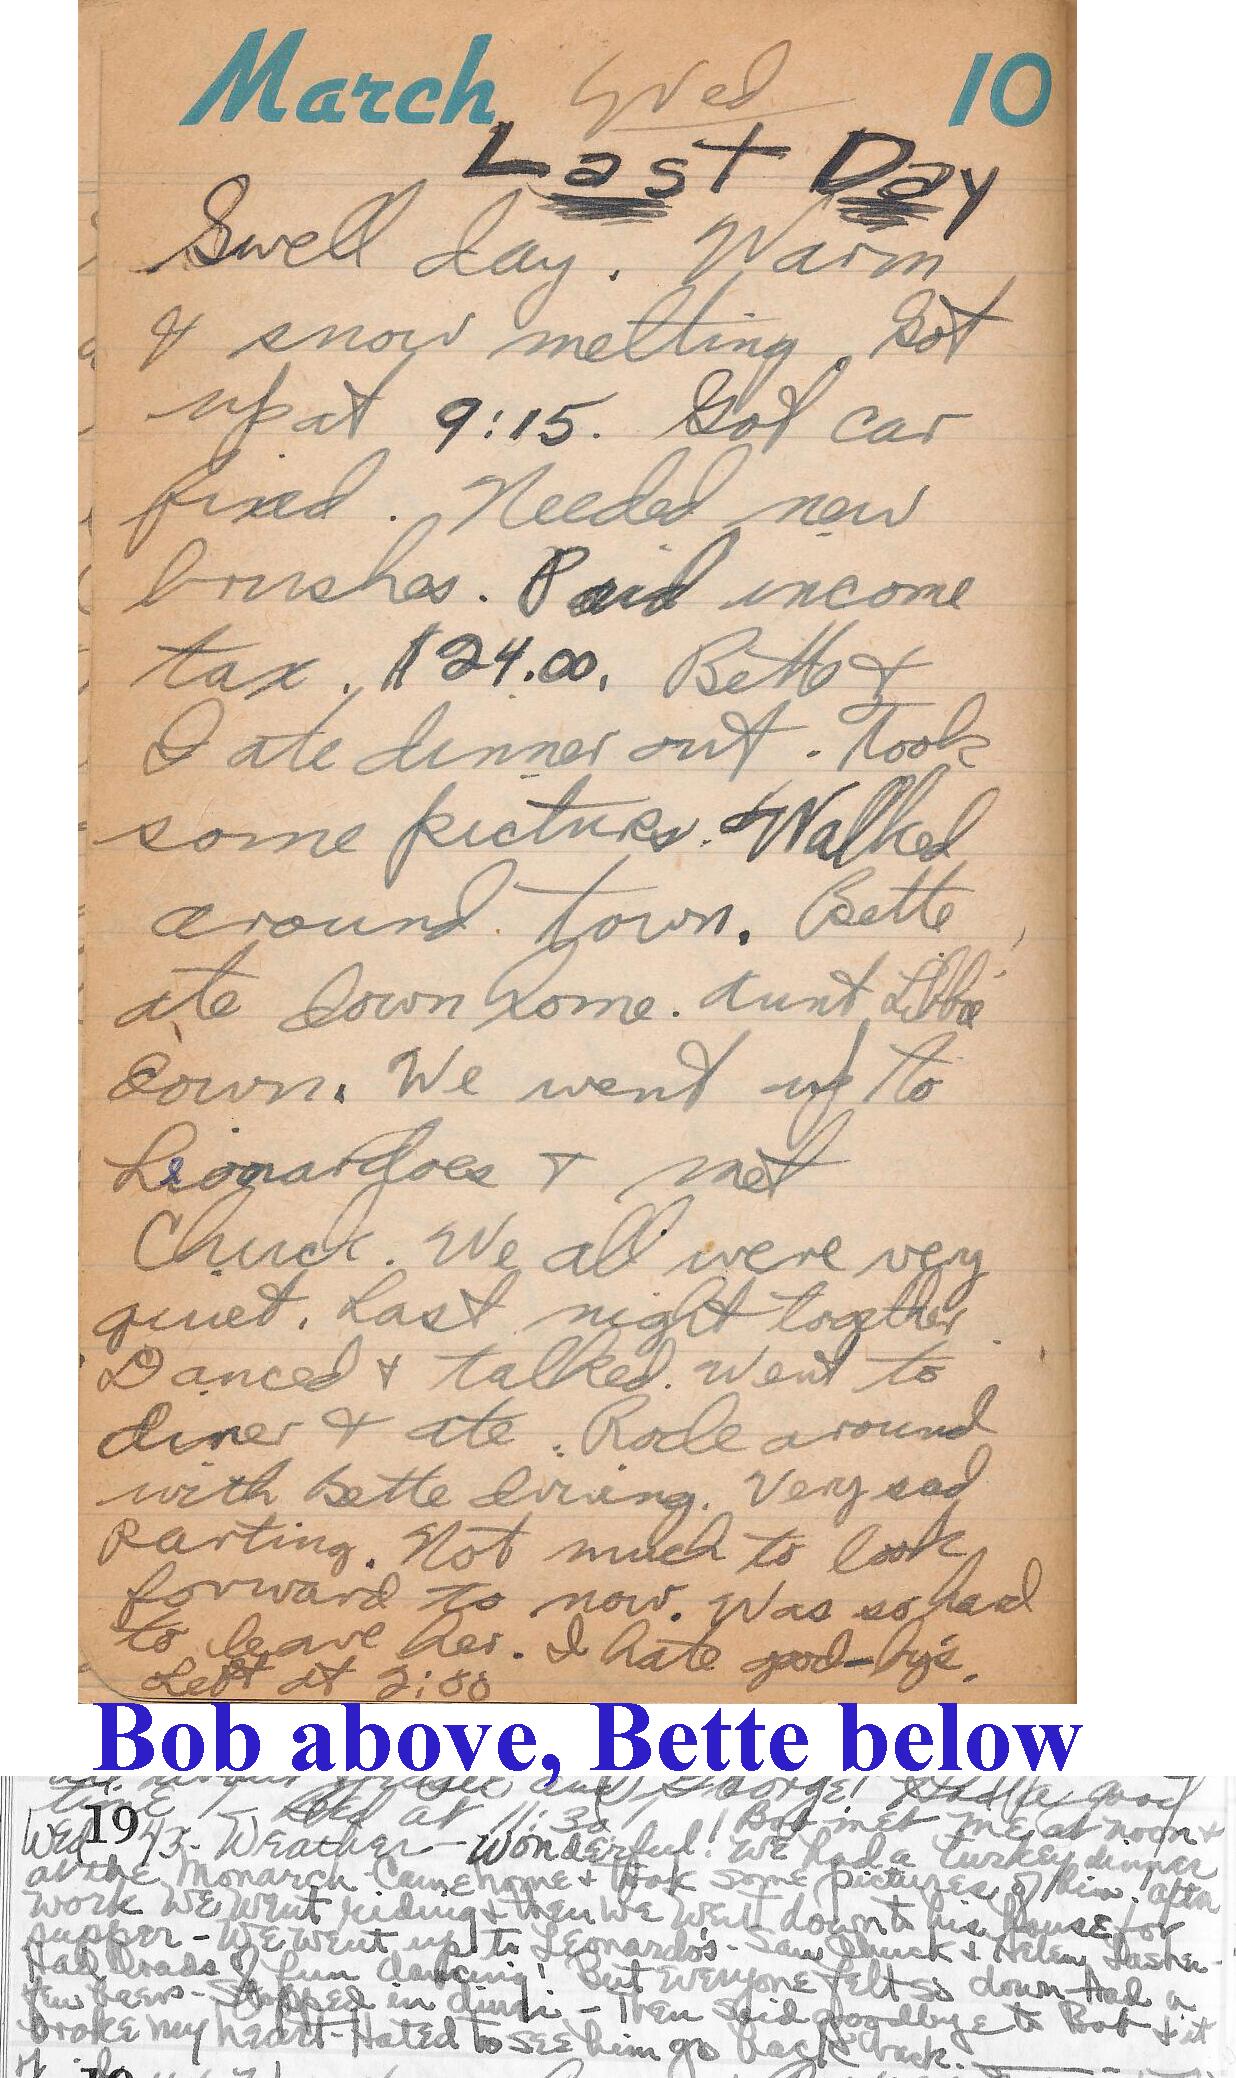 March Wed 10
Last Day
Swell day. Warm
& snow melting. Got
up at 9:15. Got car
fixed. Needed new
brushes. Paid income
tax. $24.00. Bette &
I ate dinner out. Took
some pictures. & Walked
around town. Bette
ate down home. Aunt Libbie
down. We went up to
Leonardoes & met
Chuck. We all were very
quiet. Last night together.
Danced & talked. Went to
diner & ate. Rode around
with Bette driving. Very sad
parting. Not much to look
forward to now. Was so hard
to leave her. I hate good-bys.
Left at 2:00
Bob above, Bette below
George! Had a good
time - Bed at 11:30
Wed 19 43- Weather - Wonderful! Bob met me at noon &
we had a turkey dinner
at the Monarch Came home & took some pictures of him. after
work we went riding & then we went down to his house for
supper - We went up to Leonardo's - Saw Chuck & Helen Lasher -
Had loads of fun dancing! But everyone felt so down - Had a
few beers - Stopped in diner - Then said goodbye to Bob & it
broke my heart - Hated to see him go back back.
19